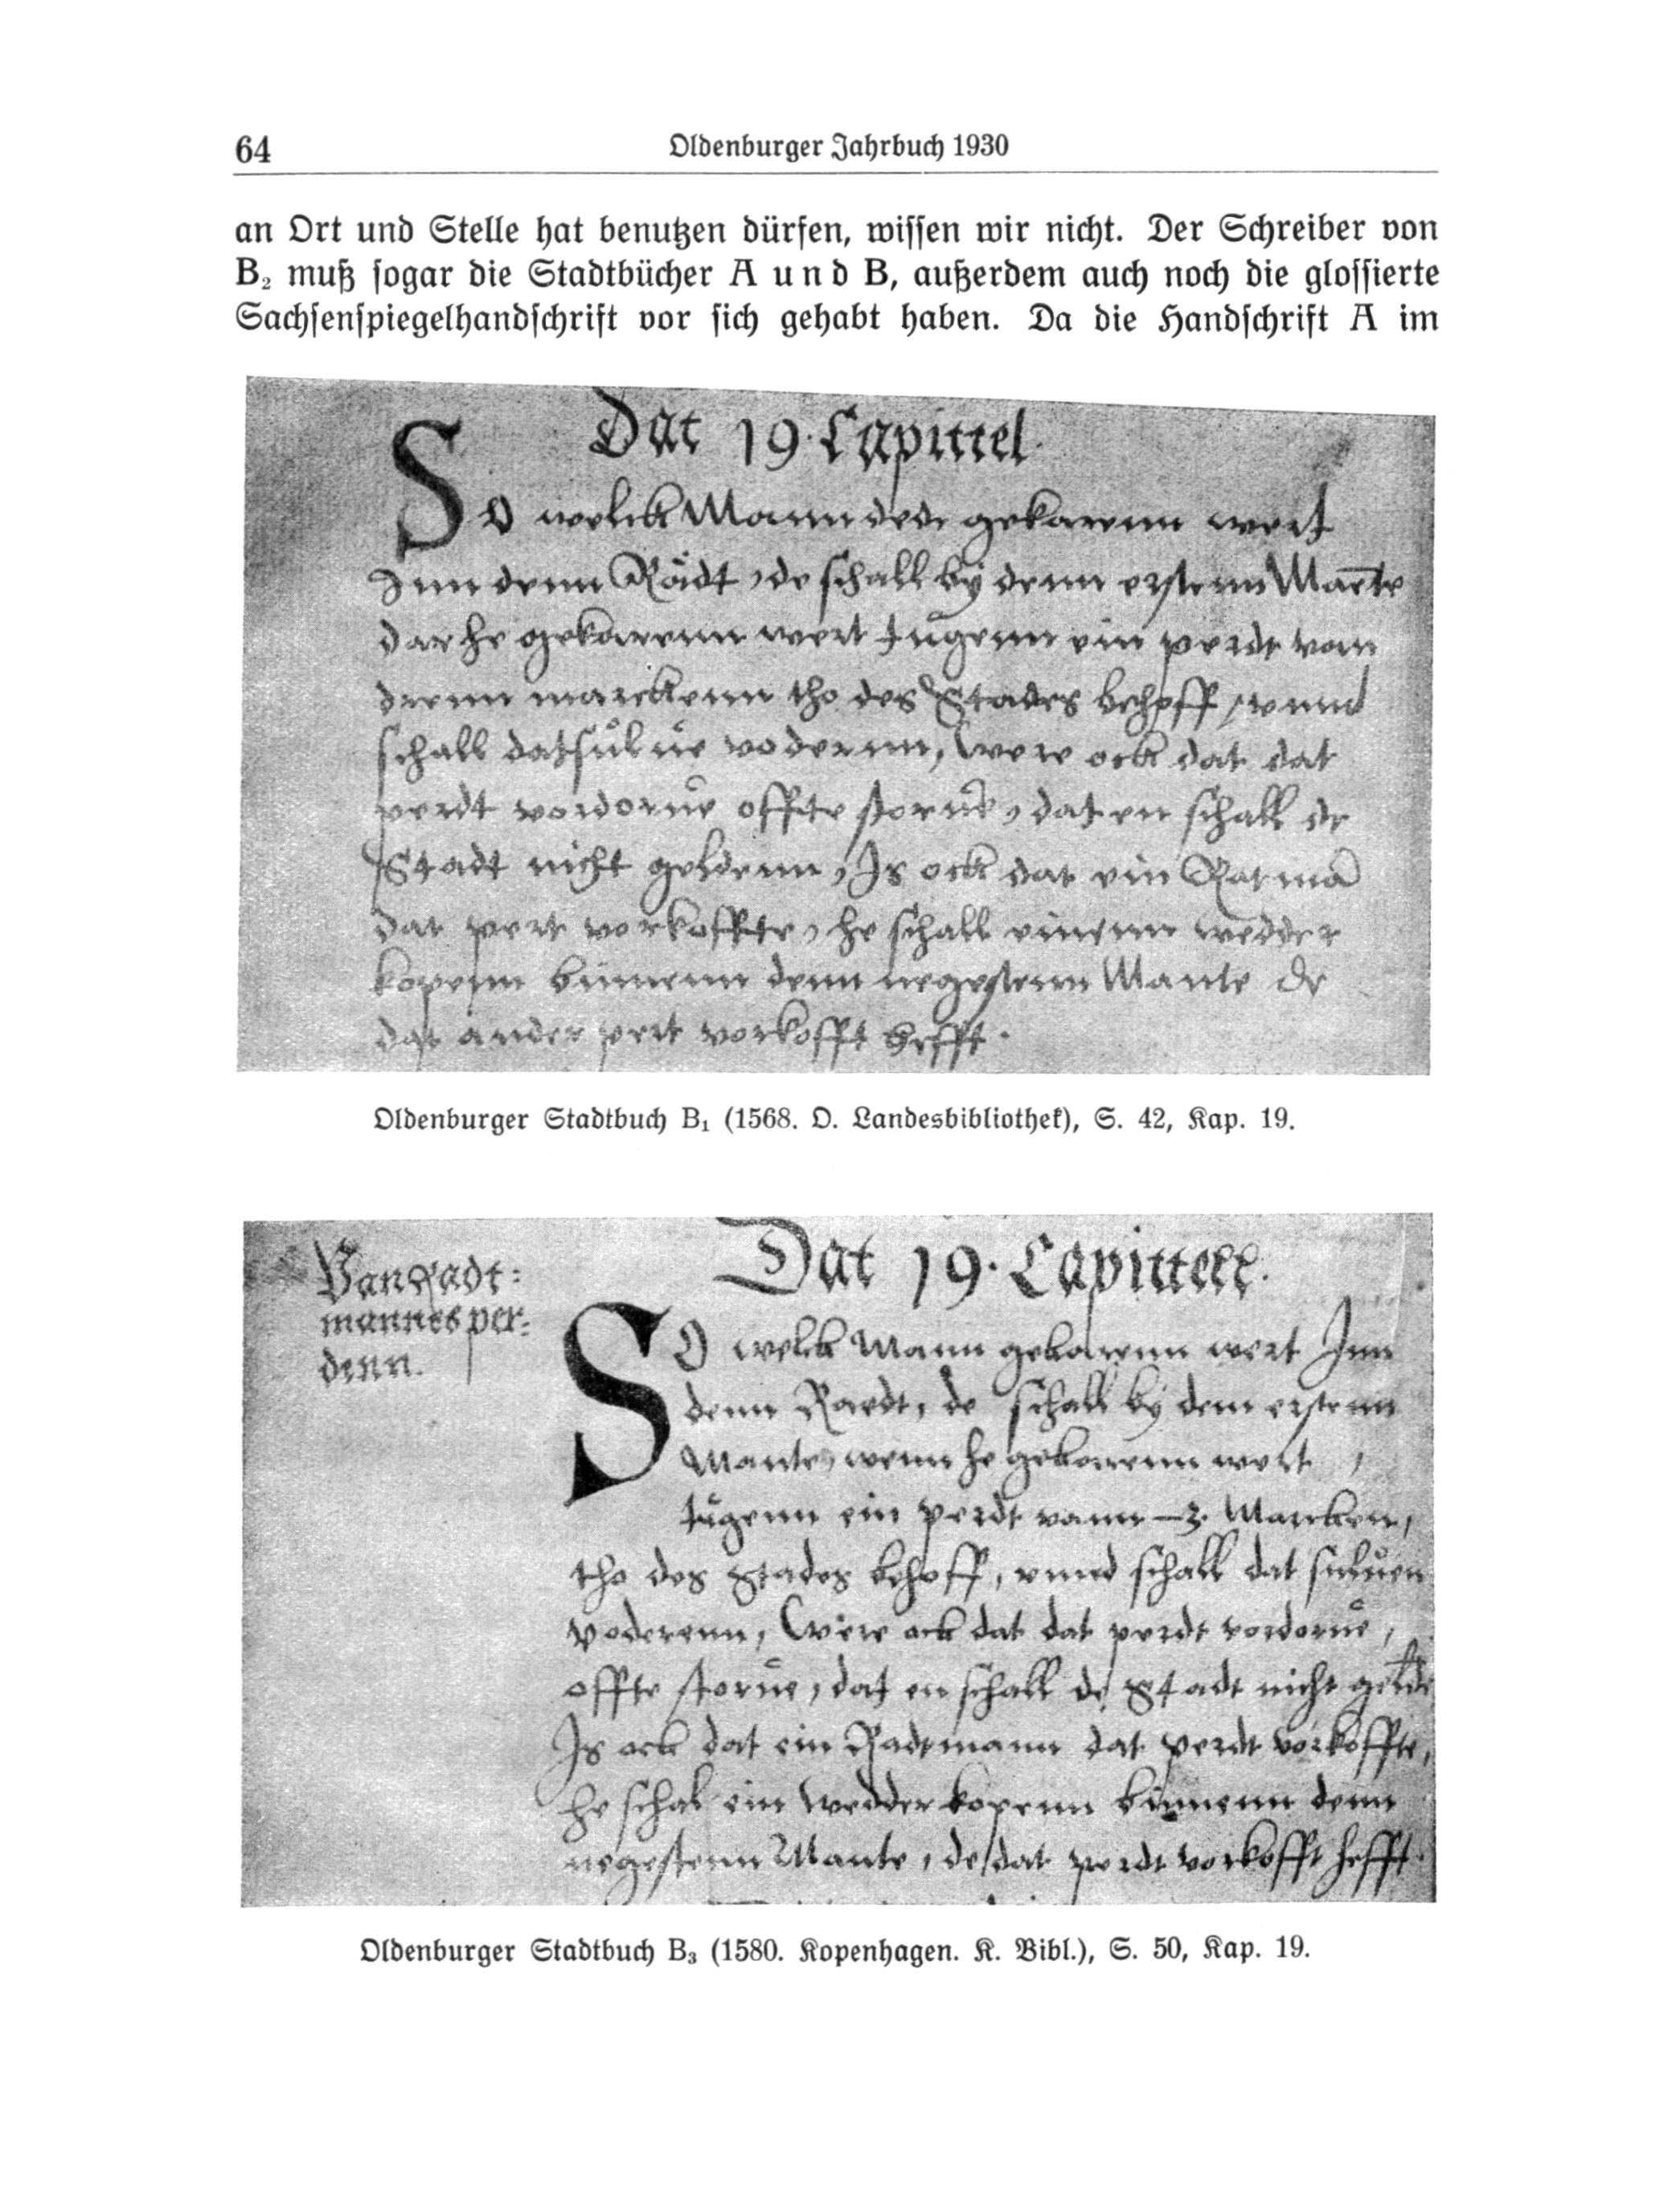 64
Oldenburger Jahrbuch 1930
an Ort und Stelle hat benutzen dürfen, wissen wir nicht. Der Schreiber von
B₂ muß sogar die Stadtbücher A und B, außerdem auch noch die glossierte
Sachsenspiegelhandschrift vor sich gehabt haben. Da die Handschrift A im
Dat 19. Capittel.
So welck Mann dede gekarenn wert
Inn denn Rådt, de schall by denn erstenn Mante
dar he gekarenn wert tugenn ein perdt vann
drenn marckenn tho des Stades behoff, vnnd
schall datsulue voderenn, were ock dat dat
perdt vordorue offte storue, dat en schall de
Stadt nicht geldenn, Is ock dat ein Ratmā
dat pert vorkoffte, he schall einenn wedder
kopenn binnenn denn negestenn Mante de
dat ander pert vorkofft hefft.
Oldenburger Stadtbuch B₁ (1568. O. Landesbibliothek), S. 42, Kap. 19.
Van Radt=
mannes per=
denn.
Dat 19. Capittell.
SO welck Mann gekarenn wert Inn
denn Raedt, de schall by dem erstenn
Mante, wenn he gekarenn wert,
tugenn ein perdt vann 3. Marcken,
tho des Stades behoff, vnnd schall dat suluen
voderenn, were ock dat dat perdt vordorue,
offte storue, dat en schall de Stadt nicht gelde
Is ock dat ein Radtmann dat perdt vorkoffte,
he schal ein wedder kopenn binnenn denn
negestenn Mante, de dat perdt vorkofft hefft.
Oldenburger Stadtbuch B₃ (1580. Kopenhagen. K. Bibl.), S. 50, Kap. 19.